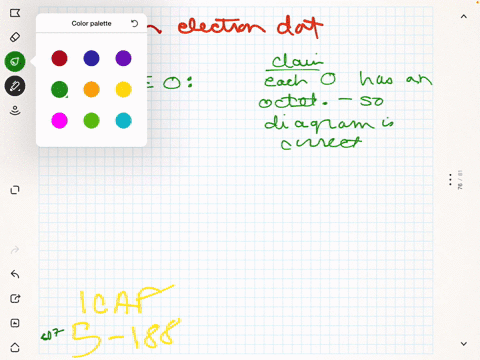 Color palette
n election dot
E O:
claim
each O has an
octet. - so
diagram is
correct
ICAP
5-188
76 / 81